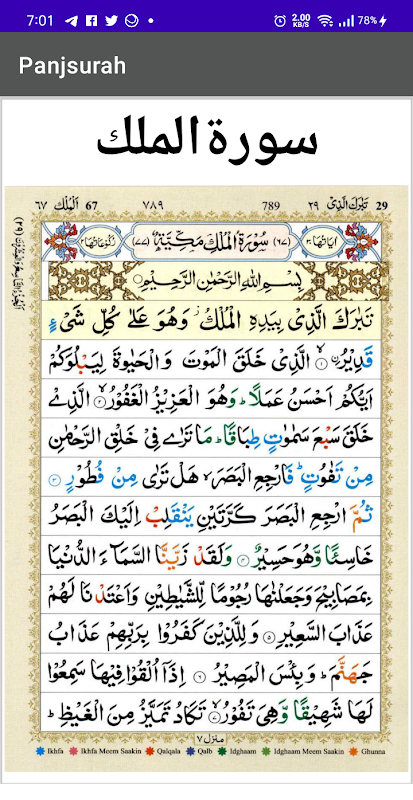 7:01 2.00 KB/S 78%
Panjsurah
سورة الملك
29 تَبٰرَكَ الَّذِىْ ٢٩ 789 ٧٨٩ 67 اَلْمُلْك ٦٧
اٰيَاتُهَا ٣٠ (٦٧) سُوْرَةُ الْمُلْكِ مَكِّيَّةٌ (٧٧) رُكُوْعَاتُهَا ٢
بِسْمِ اللّٰهِ الرَّحْمٰنِ الرَّحِيْمِ
تَبٰرَكَ الَّذِىْ بِيَدِهِ الْمُلْكُ ز وَهُوَ عَلٰى كُلِّ شَىْءٍ
قَدِيْرُ ۨ ۙ﴿١﴾ الَّذِىْ خَلَقَ الْمَوْتَ وَ الْحَيٰوةَ لِيَبْلُوَكُمْ
اَيُّكُمْ اَحْسَنُ عَمَلًا ؕ وَهُوَ الْعَزِيْزُ الْغَفُوْرُ ۙ﴿٢﴾ الَّذِىْ
خَلَقَ سَبْعَ سَمٰوٰتٍ طِبَاقًا ؕ مَا تَرٰى فِىْ خَلْقِ الرَّحْمٰنِ
مِنْ تَفٰوُتٍ ؕ فَارْجِعِ الْبَصَرَ ۙ هَلْ تَرٰى مِنْ فُطُوْرٍ ﴿٣﴾
ثُمَّ ارْجِعِ الْبَصَرَ كَرَّتَيْنِ يَنْقَلِبْ اِلَيْكَ الْبَصَرُ
خَاسِئًا وَّهُوَ حَسِيْرٌ ﴿٤﴾ وَلَقَدْ زَيَّنَّا السَّمَآءَ الدُّنْيَا
بِمَصَابِيْحَ وَجَعَلْنٰهَا رُجُوْمًا لِّلشَّيٰطِيْنِ وَاَعْتَدْنَا لَهُمْ
عَذَابَ السَّعِيْرِ ﴿٥﴾ وَلِلَّذِيْنَ كَفَرُوْا بِرَبِّهِمْ عَذَابُ
جَهَنَّمَ ؕ وَبِئْسَ الْمَصِيْرُ ﴿٦﴾ اِذَاۤ اُلْقُوْا فِيْهَا سَمِعُوْا
لَهَا شَهِيْقًا وَّهِىَ تَفُوْرُ ۙ﴿٧﴾ تَكَادُ تَمَيَّزُ مِنَ الْغَيْظِ ؕ
منزل ٧
Ikhfa Ikhfa Meem Saakin Qalqala Qalb Idghaam Idghaam Meem Saakin Ghunna